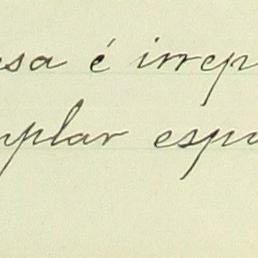 sa é irrep
mplar espo